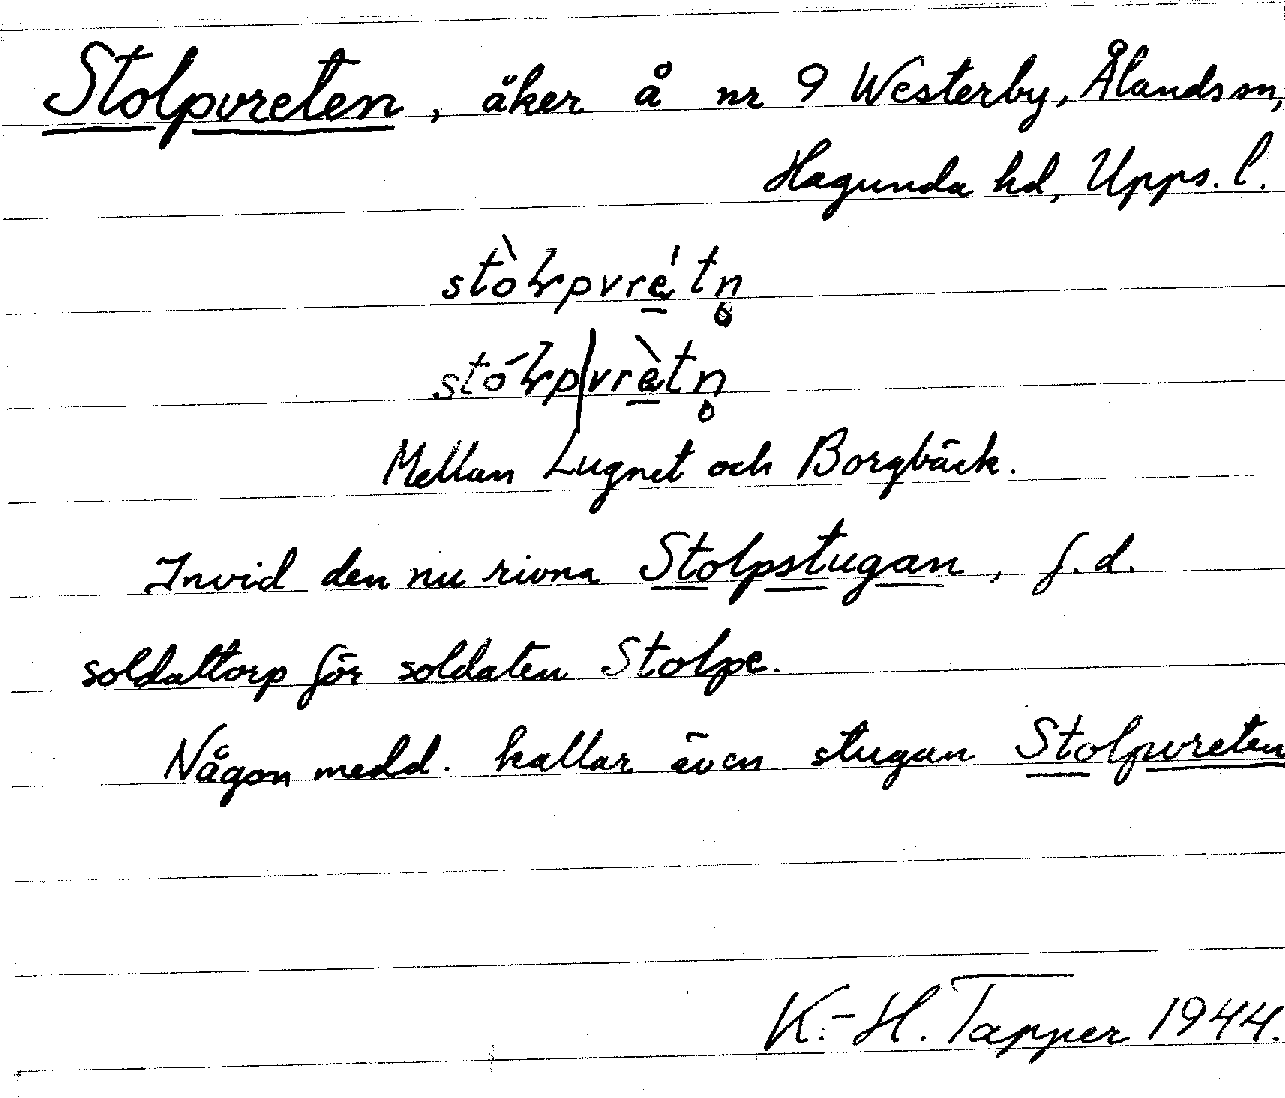 Stolpvreten, åker å nr 9 Westerby, Ålands sn,
Hagunda hd, Upps. l.
stòɫpvrétn̥
stóɫp|vrètn̥
Mellan Lugnet och Borgbäck.
Invid den nu rivna Stolpstugan, f.d.
soldattorp för soldaten Stolpe.
Någon medd. kallar även stugan Stolpvreten
K.-H. Tapper 1944.